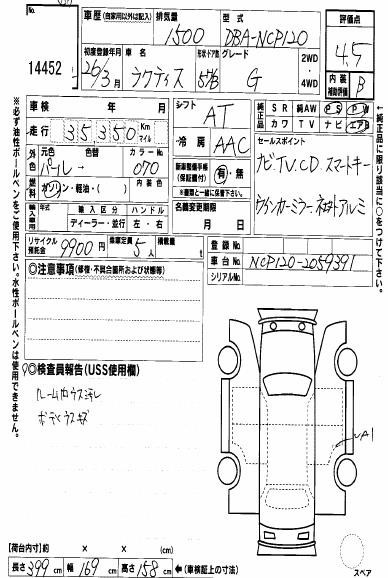 No.
14452
車歴(自家用以外は記入)
排気量 1500
型式 DBA-NCP120
評価点 4.5
初度登録年月 26/3月
車名 ラクティス
形状ドア数
グレード G
2WD・4WD
内装補助評価 B
車検 年 月
シフト AT
純正品 SR 純AW PS PW
カワ TV ナビ エアB
走行 35350 Km マイル
冷房 AAC
セールスポイント
ナビTV.CD スマートキー
ウインカーミラー ネホトアルミ
外色 元色 パール→ 色替 カラーNo. 070
燃料 ガソリン・軽油・( ) 内装色
新車整備手帳(保証書付) 有・無
※書類と一緒に保管下さい。
輸入車用 年式 輸入区分 ハンドル
ディーラー・並行 左・右
名義変更期限 月 日
リサイクル預託金 9900円
乗車定員 5人
積載量 t
登録No.
車台No. NCP120-2059391
シリアルNo.
◎注意事項(修復・不具合箇所および状態等)
◎検査員報告(USS使用欄)
ルーム内ウスヨゴレ
ボディウスキズ
A1
【荷台内寸】約 × × (cm)
長さ 399 cm 幅 169 cm 高さ 158 cm ←(車検証上の寸法)
スペア
※必ず油性ボールペンをご使用下さい。水性ボールペンは使用できません。
←純正品に限り該当に○をつけて下さい。